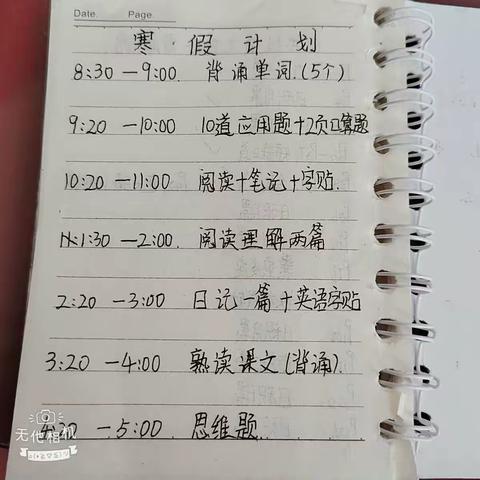 Date. Page.
寒 假 计 划
8:30 —9:00. 背诵单词.(5个)
9:20 —10:00 10道应用题+2页口算题
10:20 —11:00 阅读+笔记+字贴.
1:30 —2:00. 阅读理解两篇
2:20 —3:00 日记一篇+英语字贴
3:20 —4:00 熟读课文(背诵).
4:30 —5:00. 思维题.
无他相机